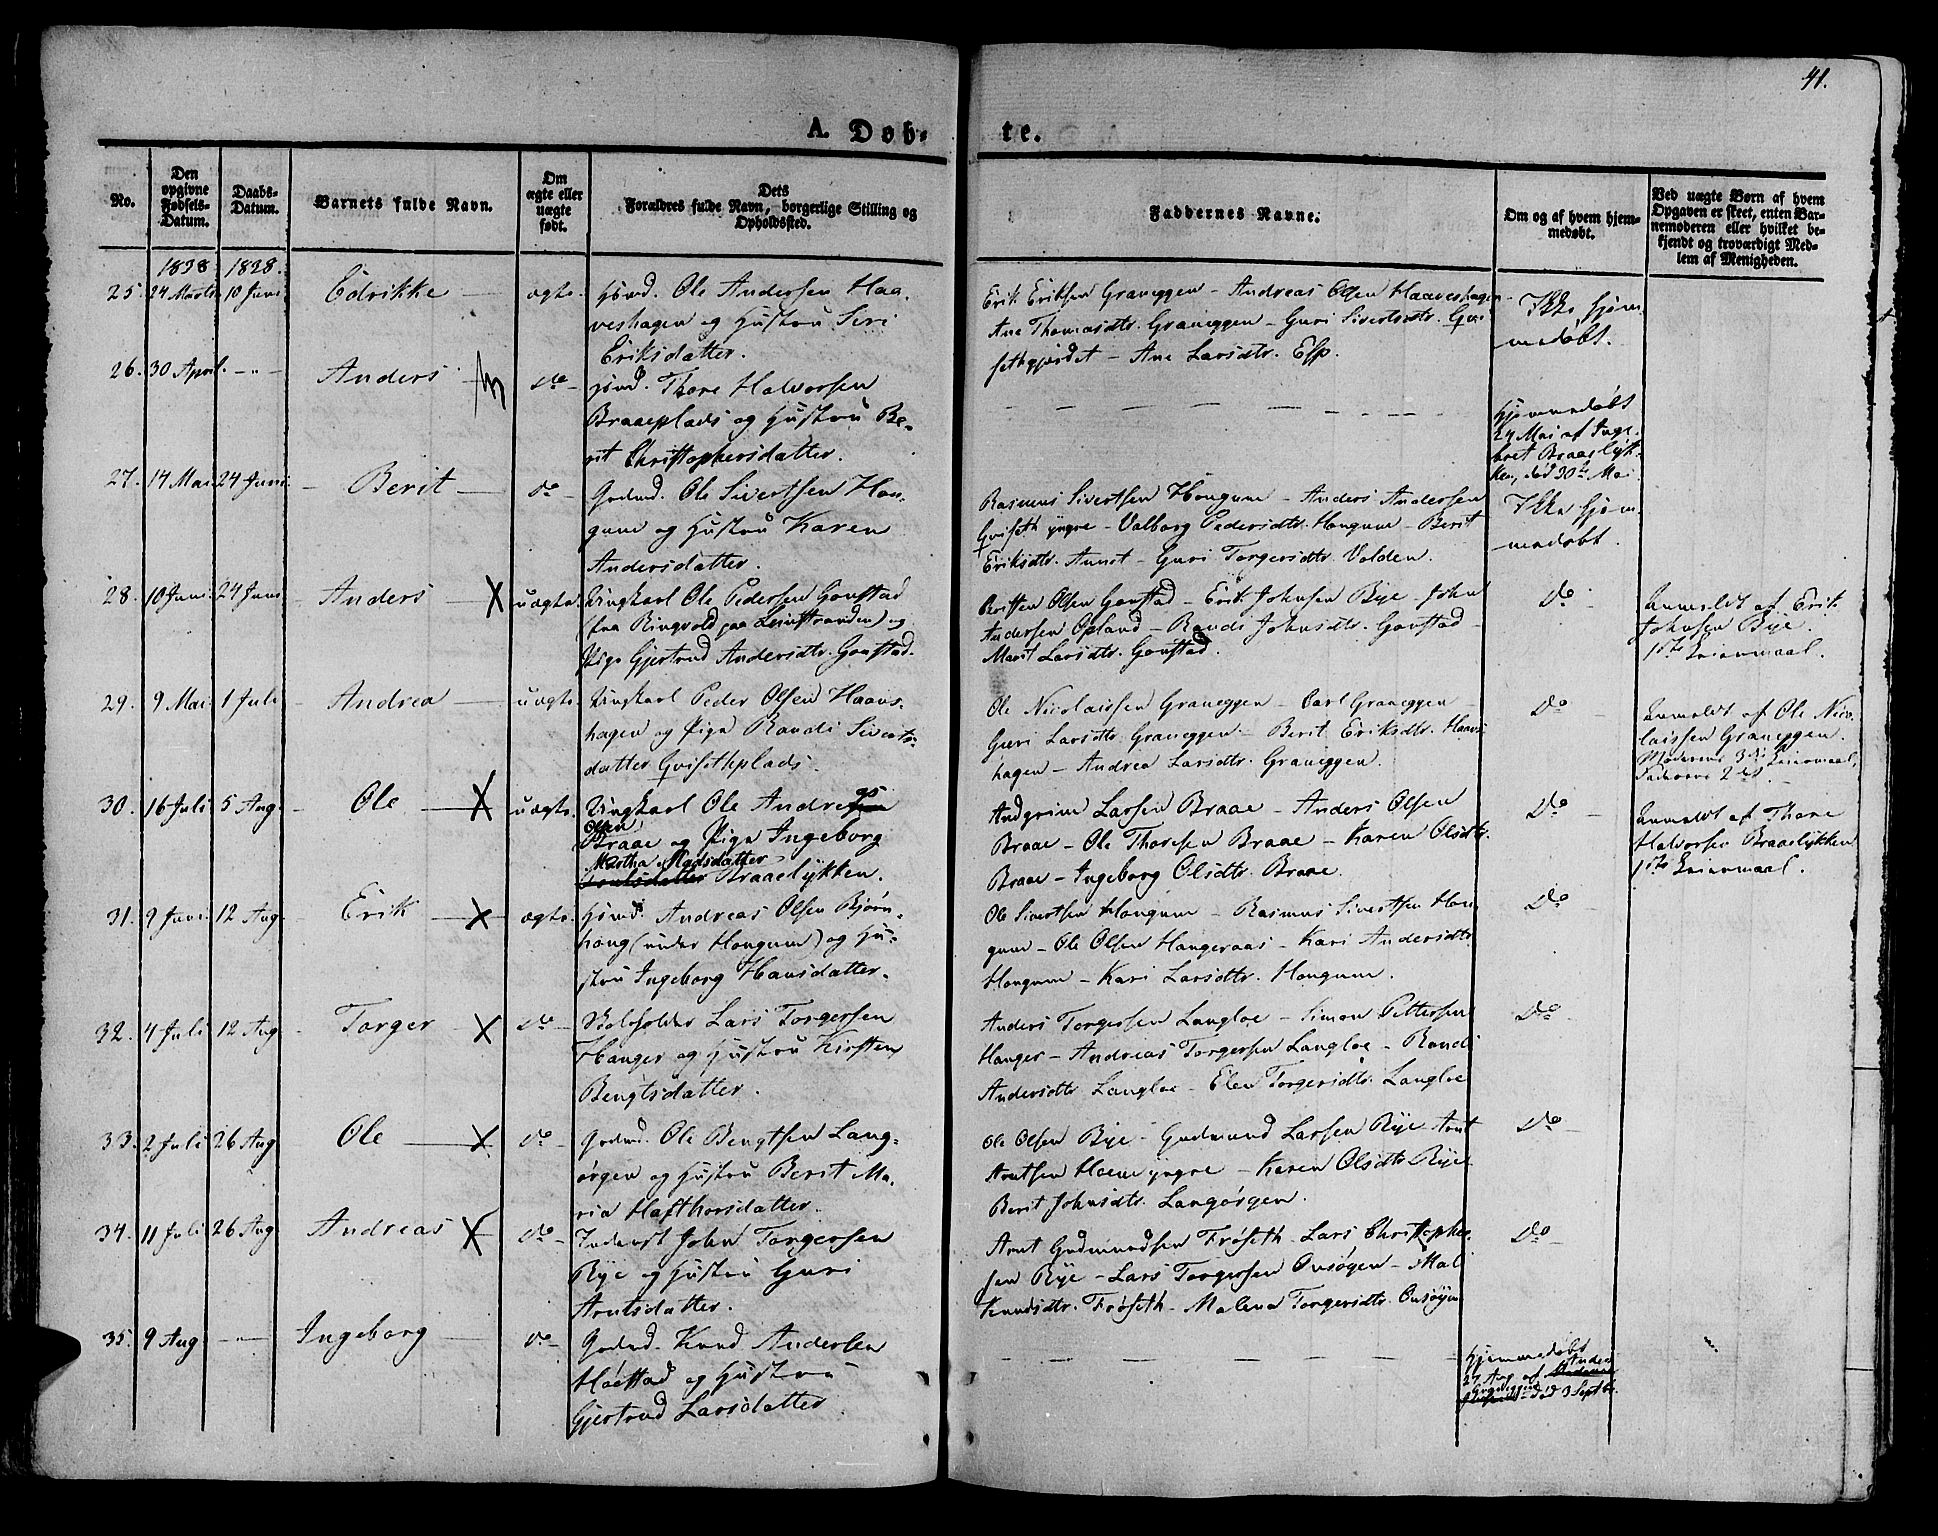 41.
A. Døb-
te.
No.
Den opgivne Fødsels-Datum.
Daabs-Datum.
Barnets fulde Navn.
Om ægte eller uægte født.
Dets Forældres fulde Navn, borgerlige Stilling og Opholdssted.
Faddernes Navne.
Om og af hvem hjemmedøbt.
Ved uægte Børn af hvem Opgaven er skeet, enten Barnemoderen eller hvilket bekjendt og troværdigt Medlem af Menigheden.
1838 1838.
25. 24 Marts 10 Juni Edrikke ægte.
Huusmd. Ole Andersen Haa-
veshagen og Hustru Siri
Eriksdatter.
Erik Eriksen Graneggen - Andreas Olsen Haaveshagen
Ane Thomasdtr. Graneggen - Guri Sivertsdtr. Qvi
sethgjerdet - Ane Larsdtr. Esp.
Ikke hjem-
medøbt.
26. 30 April - " - Anders do
Huusmd. Thore Halvorsen
Braaeplads og Hustru Be-
rit Christophersdatter.
Hjemmedøbt
24 Mai af Inge-
bret Braaelyk-
ken, død 30te Mai
27. 14 Mai 24 Juni Berit do
Gaardmd. Ole Sivertsen Hon-
gum og Hustru Karen
Andersdatter.
Rasmus Sivertsen Hongum - Anders Andersen
Qviseth yngre - Valborg Pedersdtr. Hongum - Berit
Eriksdtr. Aunet - Guri Torgersdtr. Volden.
Ikke hjem-
medøbt.
28. 10 Juni 24 Juni Anders X uægte.
Ungkarl Ole Pedersen Gonstad
(fra Ringvold paa Leinstranden) og
Pige Gjertrud Andersdtr. Gonstad.
Olsen Gonstad - Erik Johnsen Bye - John
Andersen Opland - Randi Johnsdtr. Gonstad -
Marit Larsdtr. Gonstad.
do
Anmeldt af Erik
Johnsen Bye.
1ste Leiermaal.
29. 9 Mai 1 Juli Andrea uægte.
Ungkarl Peder Olsen Haavs-
hagen og Pige Randi Siverts-
datter Qvisethplads.
Ole Nicolaissen Graneggen - Carl Graneggen -
Guri Larsdtr. Graneggen - Berit Eriksdtr. Haavs
hagen - Andrea Larsdtr. Graneggen.
Do
Anmeldt af Ole Nico-
laissen Graneggen.
Moderens 3die Leiermaal,
Faderens 2det.
30. 16 Juli 5 Aug. Ole X uægte.
Ungkarl Ole Andreas
Olsen
Braae og Pige Ingeborg
Martha Madsdatter
Braaelykken.
Andgrim Larsen Braae - Anders Olsen
Braae - Ole Thoresen Braae - Karen Olsdtr.
Braae - Ingeborg Olsdtr. Braae.
Do
Anmeldt af Thore
Halvorsen Braaelykken
1ste Leiermaal.
31. 9 Juni 12 Aug. Erik X ægte.
Huusmd. Andreas Olsen Bjørn-
houg (under Hongum) og Hu-
stru Ingeborg Hansdatter.
Ole Sivertsen Hongum - Rasmus Sivertsen Hon-
gum - Ole Olsen Hangeraas - Kari Andersdtr.
Hongum - Kari Larsdtr. Hongum.
Do
32. 4 Juli 12 Aug. Torger X do
Lars Torgersen
Hanger og Hustru Kirsten
Bengtsdatter.
Anders Torgersen Langloe - Simon Pettersen
Hanger - Andreas Torgersen Langloe - Randi
Andersdtr. Langloe - Elen Torgersdtr. Langloe
Do
33. 2 Juli 26 Aug. Ole X do
Gaardmd. Ole Bengtsen Lang-
ørgen og Hustru Berit Ma-
ria Hafthorsdatter.
Ole Olsen Bye - Gudmund Larsen Rye - Arnt
Arntsen Hoem yngre - Karen Olsdtr. Rye
Berit Johnsdtr. Langørgen.
Do
34. 11 Juli 26 Aug. Andreas X do
Inderst John Torgersen
Rye og Hustru Guri
Arntsdatter.
Arnt Gudmundsen Frøseth - Lars Christopher-
sen Rye - Lars Torgersen Onsøgen - Mali
Knudsdtr. Frøseth - Malena Torgersdtr. Onsøgen
Do
35. 9 Aug. - " - Ingeborg do
Gaardmd. Knud Andersen
Høestad og Hustru
Gjertrud Larsdatter.
Hjemmedøbt
27 Aug. af Anders
død 3 Septbr.